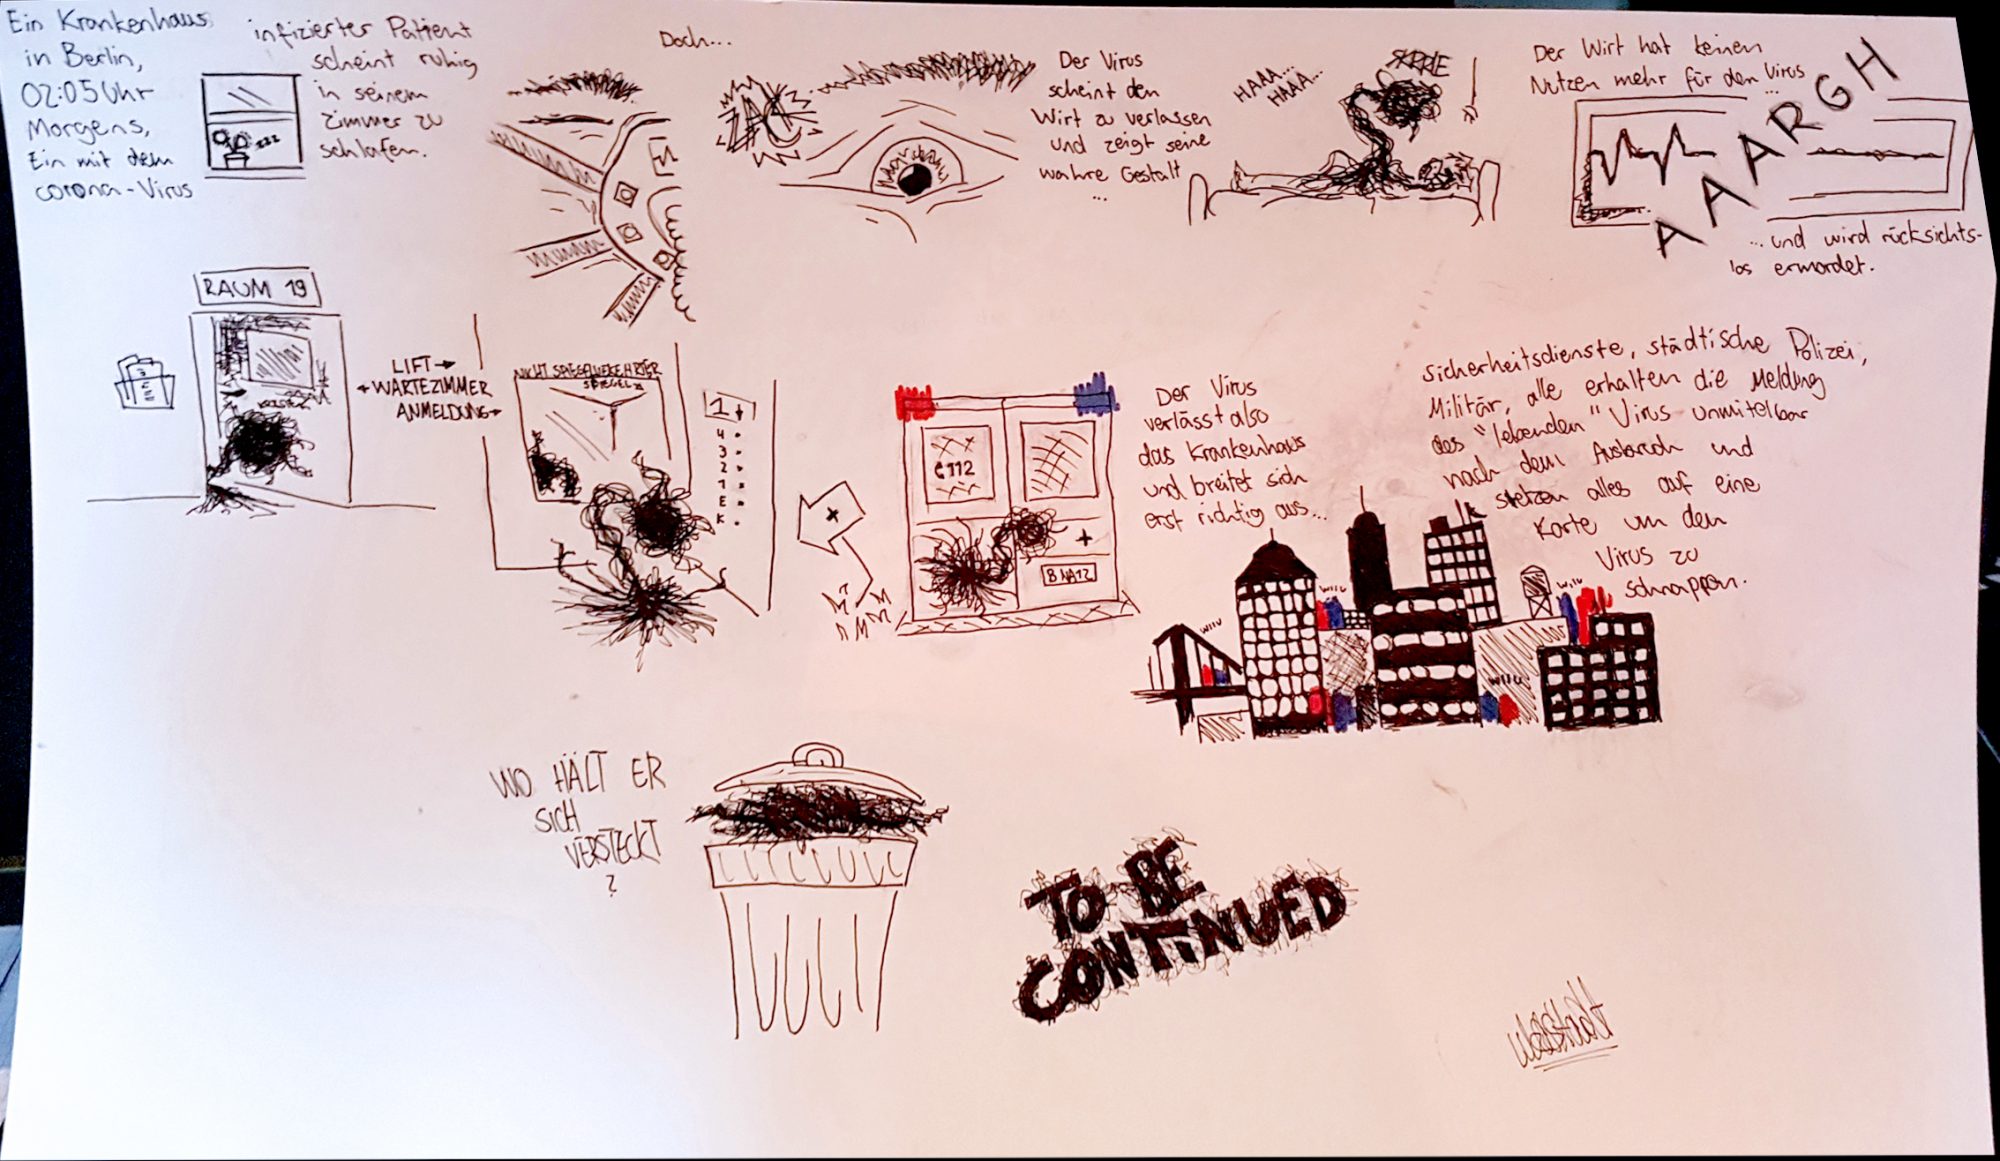 Ein Krankenhaus
in Berlin,
02:05 Uhr
Morgens,
Ein mit dem
corona-Virus
infizierter Patient
scheint ruhig
in seinem
Zimmer zu
schlafen.
zzz
Doch...
ZACK
Der Virus
scheint den
Wirt zu verlassen
und zeigt seine
wahre Gestalt
...
HAAA...
HAAA...
Der Wirt hat keinen
Nutzen mehr für den Virus
...
AAAARGH
...und wird rücksichts-
los ermordet.
RAUM 19
LIFT →
← WARTEZIMMER
ANMELDUNG →
NICHT SPIEGELVERKEHRTER
SPIEGEL
1 ↓
4
3
2
1
E
K
112
B NA12
Der Virus
verlässt also
das Krankenhaus
und breitet sich
erst richtig aus...
Sicherheitsdienste, städtische Polizei,
Militär, alle erhalten die Meldung
des "lebenden" Virus unmittelbar
nach dem Ausbruch und
setzen alles auf eine
Karte um den
Virus zu
schnappen.
WIIU
WIIU
WIIU
WIIU
WO HÄLT ER
SICH
VERSTECKT
?
TO BE
CONTINUED